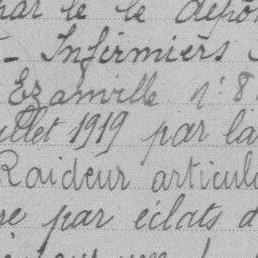 par le le dépô
- Infirmiers
Ezanville n° 8
illet 1919 par la
Raideur articula
re par éclats d